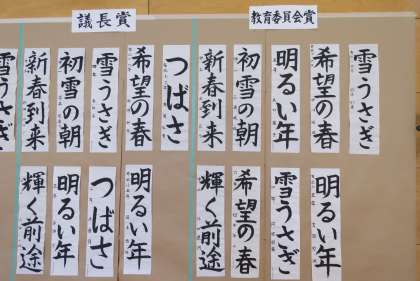 議長賞
教育委員会賞
雪うさぎ
希望の春
明るい年
初雪の朝
新春到来
つばさ
希望の春
雪うさぎ
初雪の朝
新春到来
雪うさぎ
明るい年
雪うさぎ
希望の春
輝く前途
明るい年
つばさ
明るい年
輝く前途